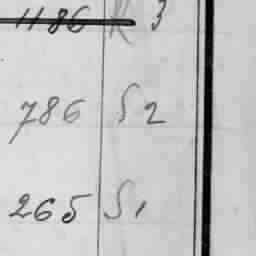 1186 R 3
786 S 2
265 S 1